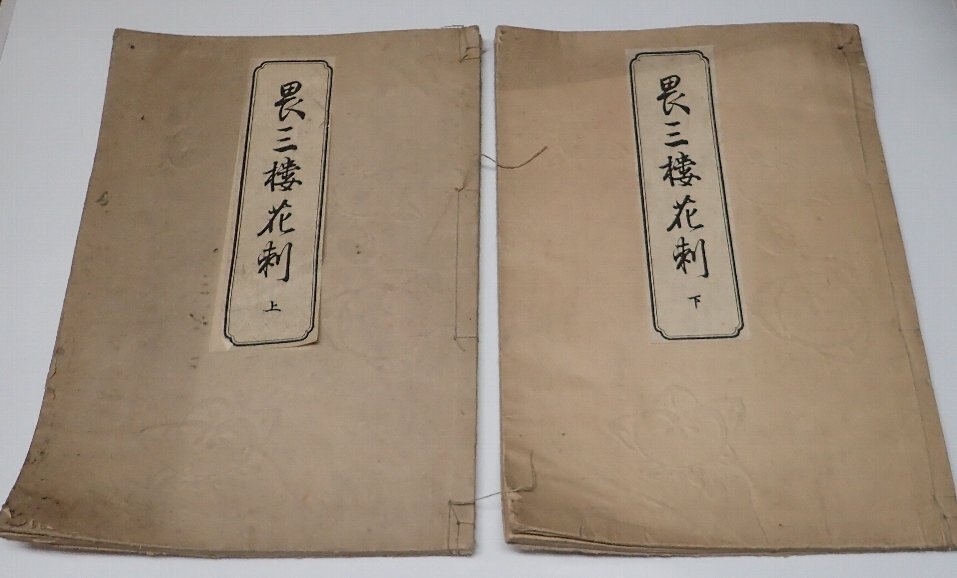 畏三楼花刺
上
畏三楼花刺
下